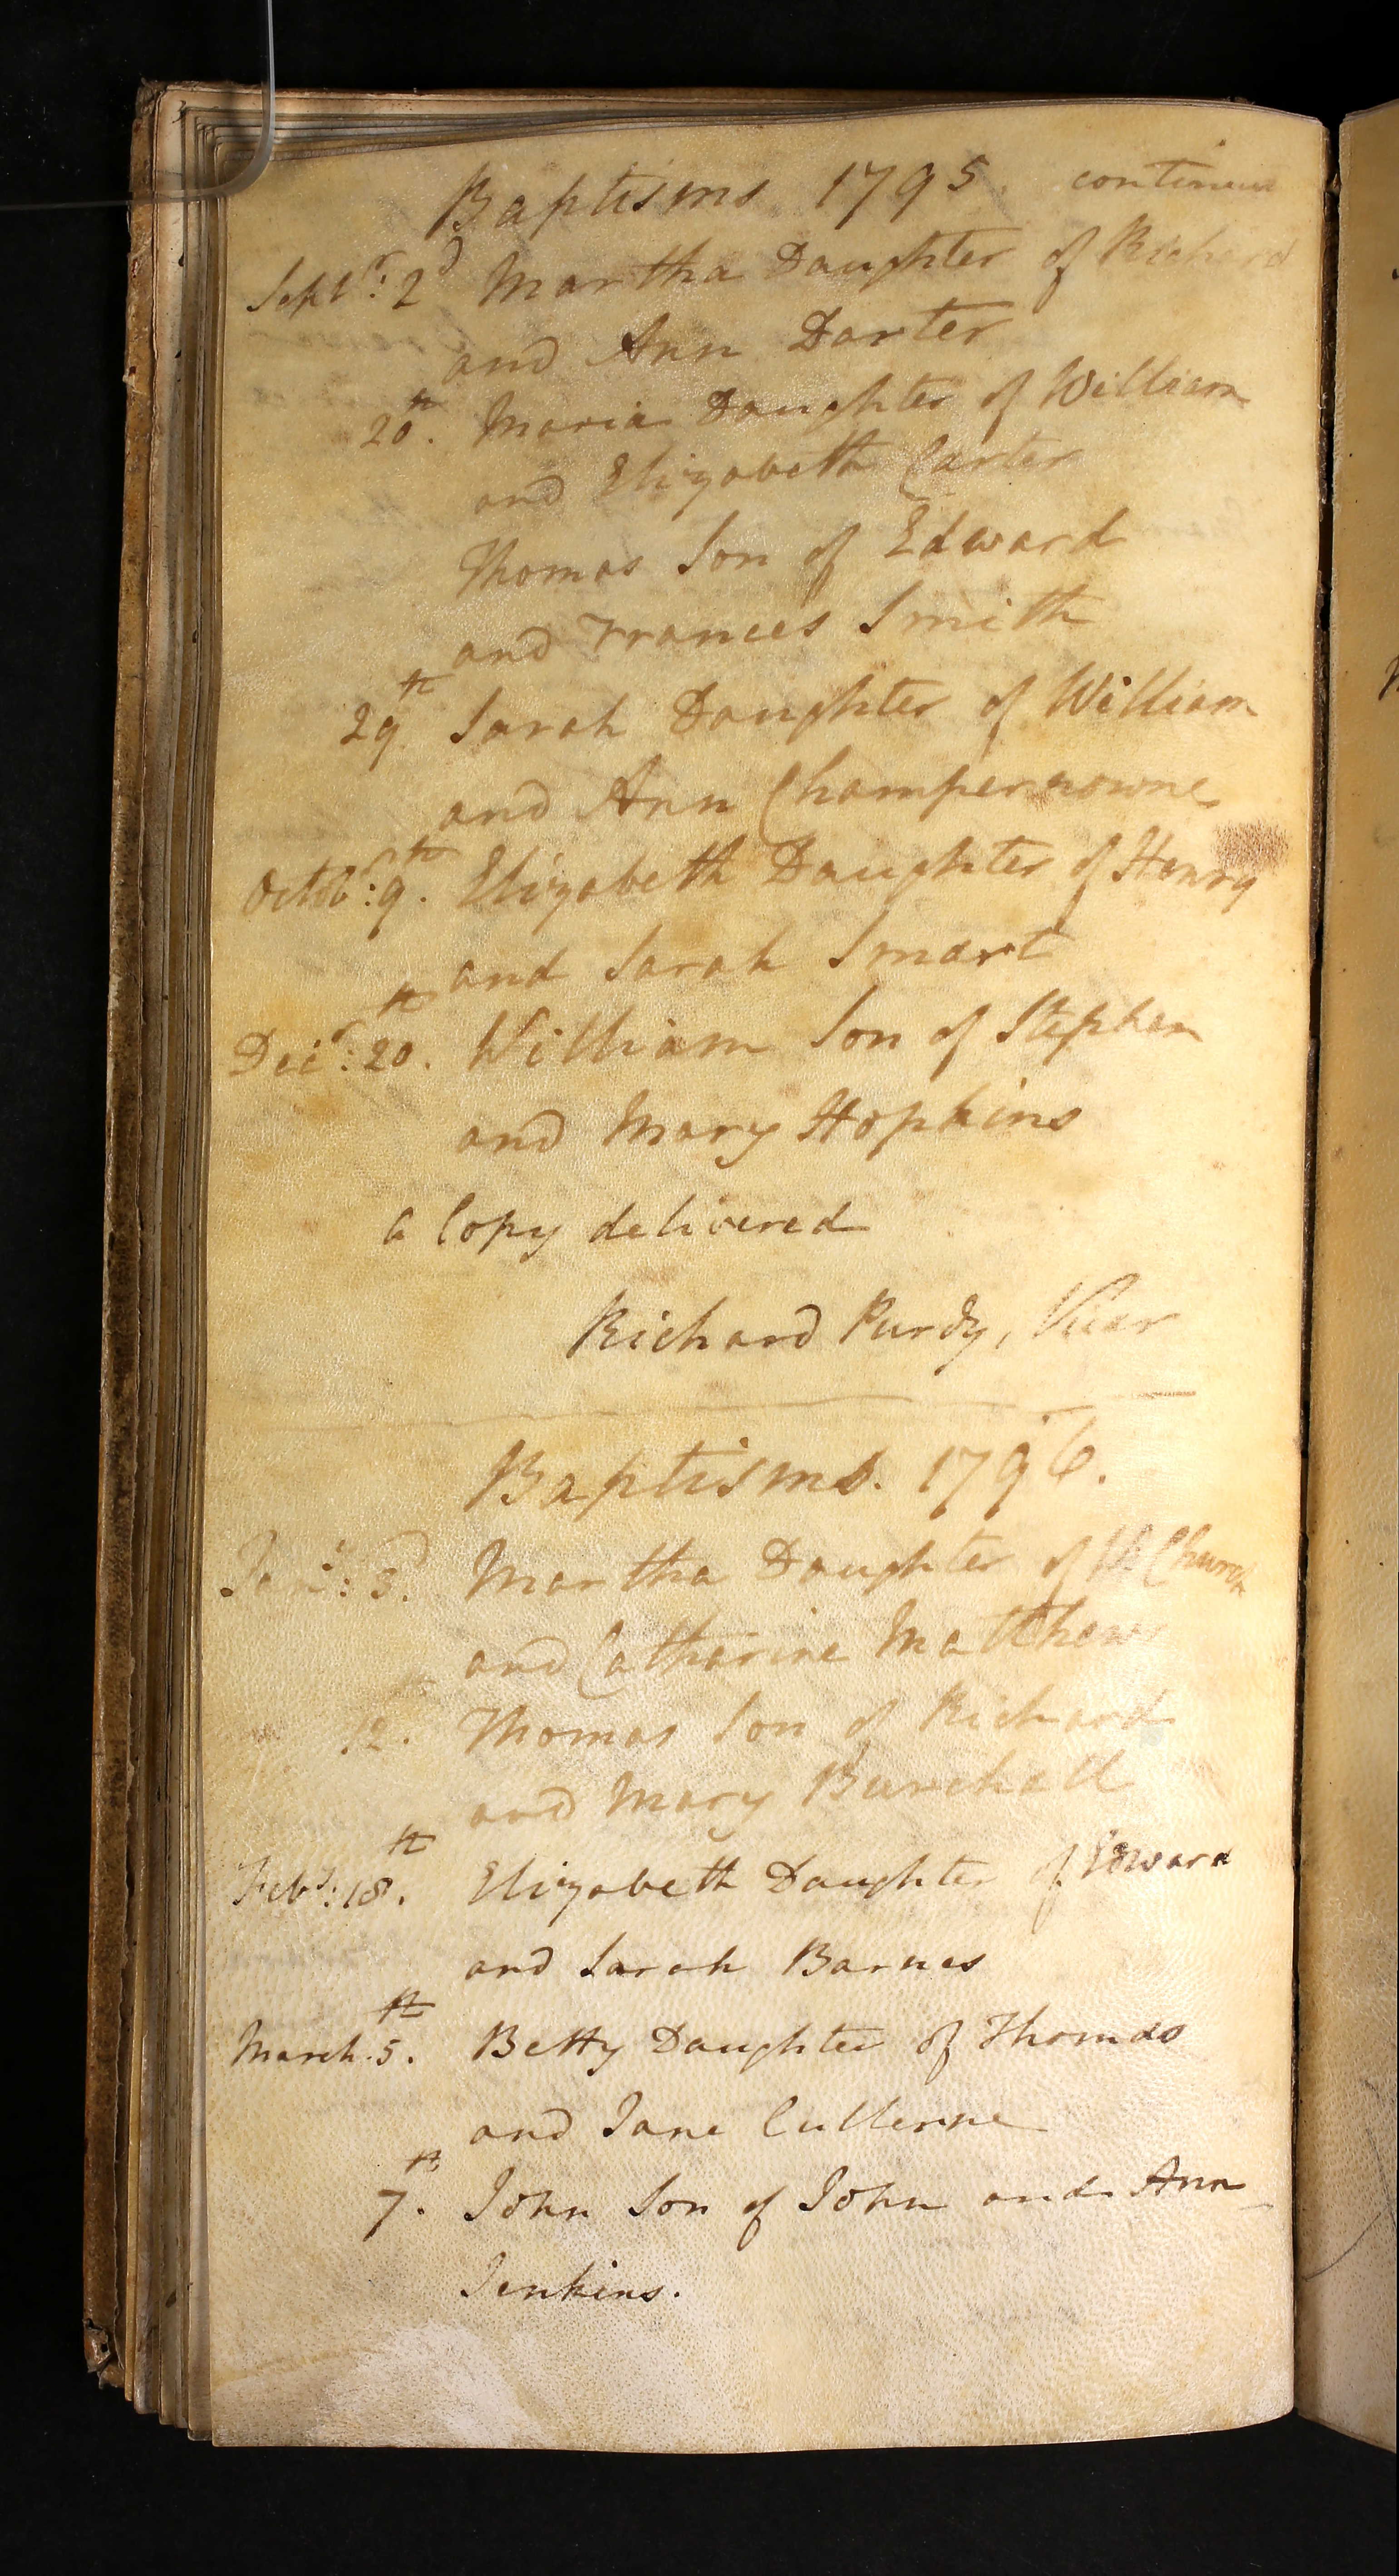 Baptisms 1795. continued
Septr: 2d Martha Daughter of Richard
and Ann Darter
20th. Maria Daughter of William
and Elizabeth Carter
Thomas Son of Edward
and Frances Smith
29th Sarah Daughter of William
and Ann Champernowne
Octobr: 9th. Elizabeth Daughter of Henry
and Sarah Smart
Decr: 20th. William Son of Stephen
and Mary Hopkins
a Copy delivered
Richard Purdy, Vicar
Baptisms. 1796.
3d. Martha Daughter of Church
and Catharine Matthews
12th. Thomas Son of Richard
and Mary Burchall
Feby: 18th. Elizabeth Daughter of Edward
and Sarah Barnes
March 5th. Betty Daughter of Thomas
and Jane Cullerne
7th. John Son of John and Ann
Jenkins.